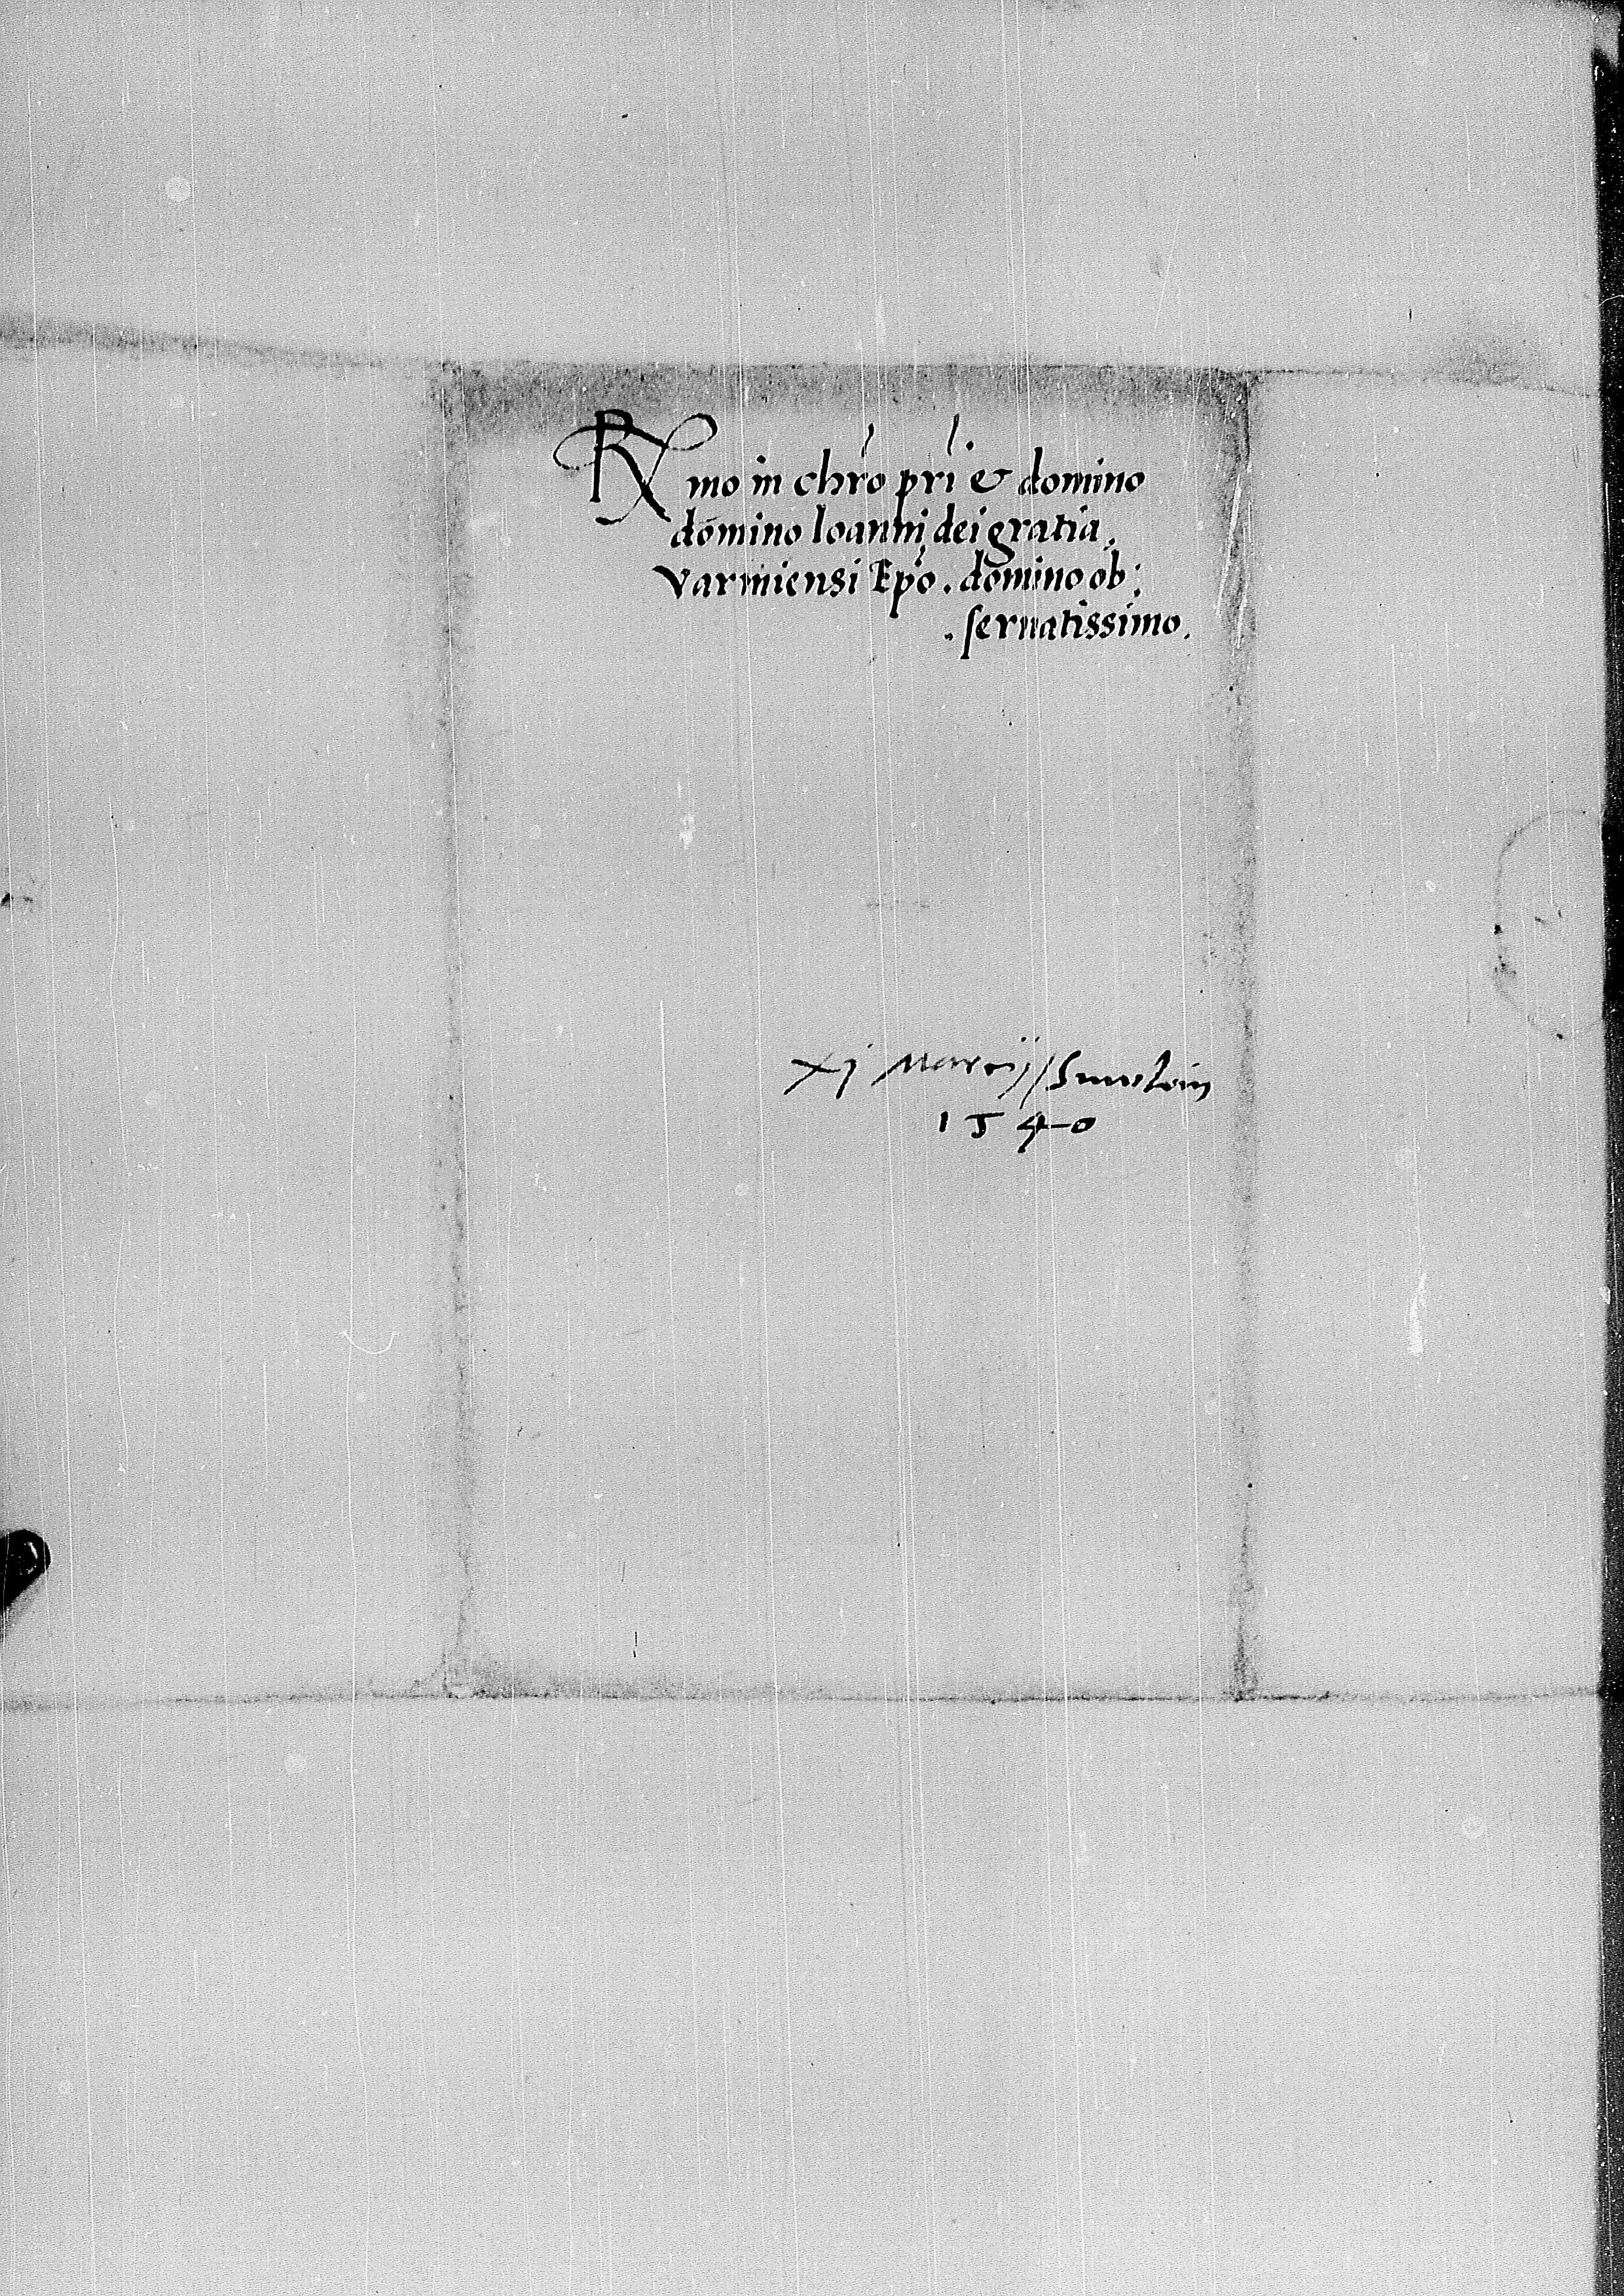 Rmo in chro pri & domino
domino Ioanni dei gratia.
Varmiensi Epo. domino ob:
. seruatissimo.
Xj Marcij /
1540